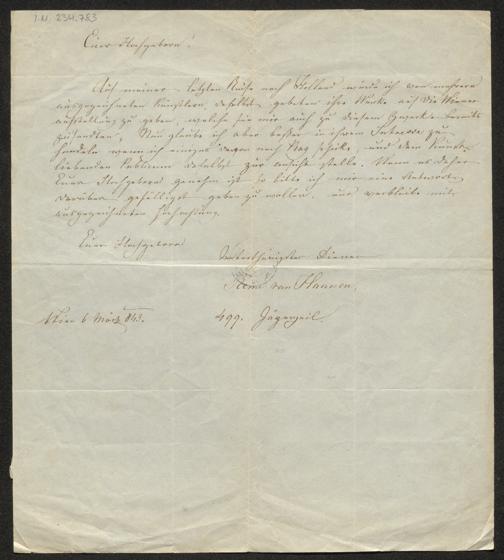 I.N. 234.783
Euer Hochgeboren!
Auf meiner letzten Reise nach Holland wurde ich von mehreren
ausgezeichneten Künstlern, daselbst gebeten ihre Werke auf die Wiener
Ausstellung zu geben, welche sie mir auch zu diesem Zwecke bereits
zusendten, Nun glaube ich aber besser in ihrem Interesse zu
handeln wenn ich einige davon nach Pest schicke, und dem Kunst-
liebenden Publicum daselbst zur ansicht stelle. Wenn es daher
Euer Hochgeboren genehm ist so bitte ich mir eine Antwort
darüber gefälligst geben zu wollen, und verbleibe mit
ausgezeichneter Hochachtung.
Euer Hochgeboren
Unterthänigster Diener
Remi van Haanen.
Wien 6 März 843.
499. Jägerzeil.